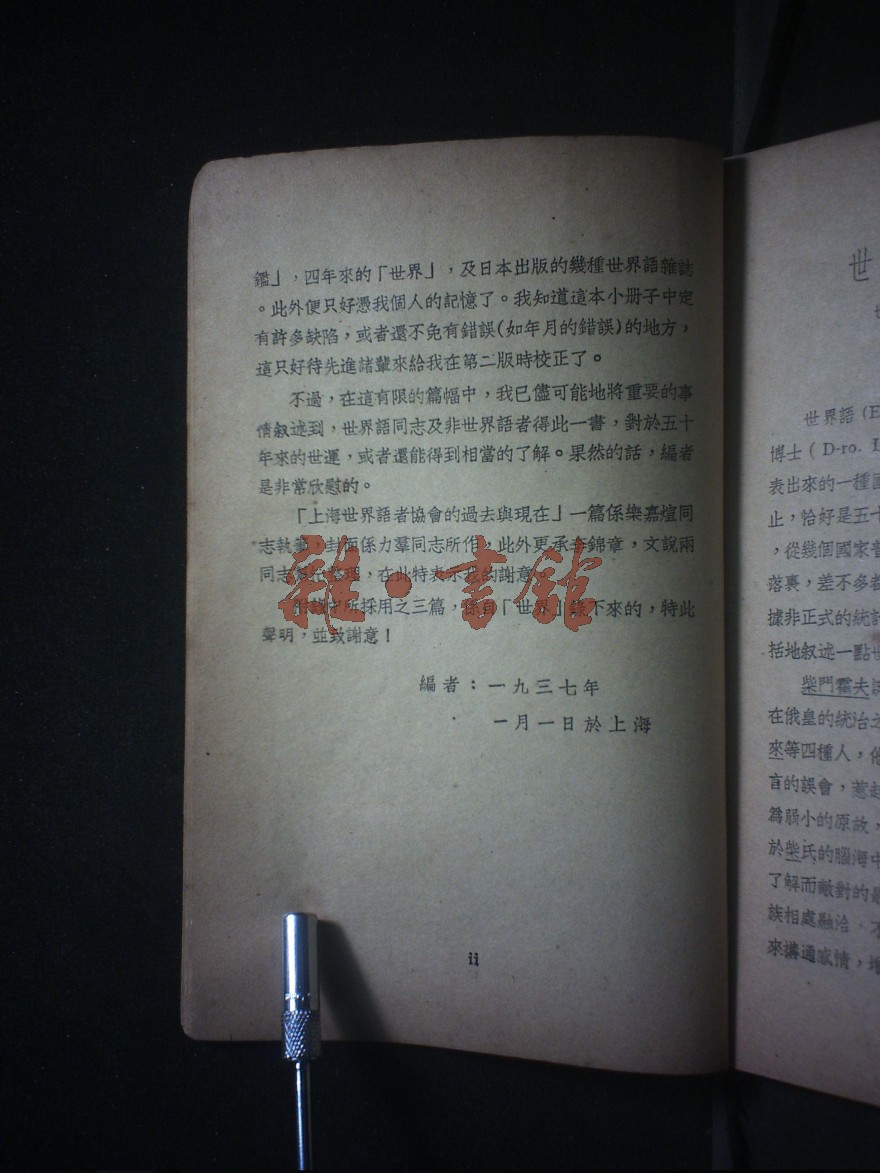 鑑」，四年來的「世界」，及日本出版的幾種世界語雜誌
。此外便只好憑我個人的記憶了。我知道這本小册子中定
有許多缺陷，或者還不免有錯誤(如年月的錯誤)的地方，
這只好待先進諸輩來給我在第二版時校正了。
不過，在這有限的篇幅中，我已儘可能地將重要的事
情叙述到，世界語同志及非世界語者得此一書，對於五十
年來的世運，或者還能得到相當的了解。果然的話，編者
是非常欣慰的。
「上海世界語者協會的過去與現在」一篇係樂嘉煊同
志執筆，封面係力羣同志所作，此外更承李錦章，文說兩
同志 整理，在此特表示我的謝意。
附錄中所採用之三篇，係自「世界」錄下來的，特此
聲明，並致謝意！
編者：一九三七年
一月一日於上海
ii
雜·書館
世
世界語 (E
博士 ( D-ro. L
表出來的一種國
止，恰好是五十
，從幾個國家普
落裏，差不多都
據非正式的統計
括地叙述一點世
柴門霍夫
在俄皇的統治之
來等四種人，他
言的誤會，惹起
爲弱小的原故，
於柴氏的腦海中
了解而敵對的最
族相處融洽，不
來溝通感情，增